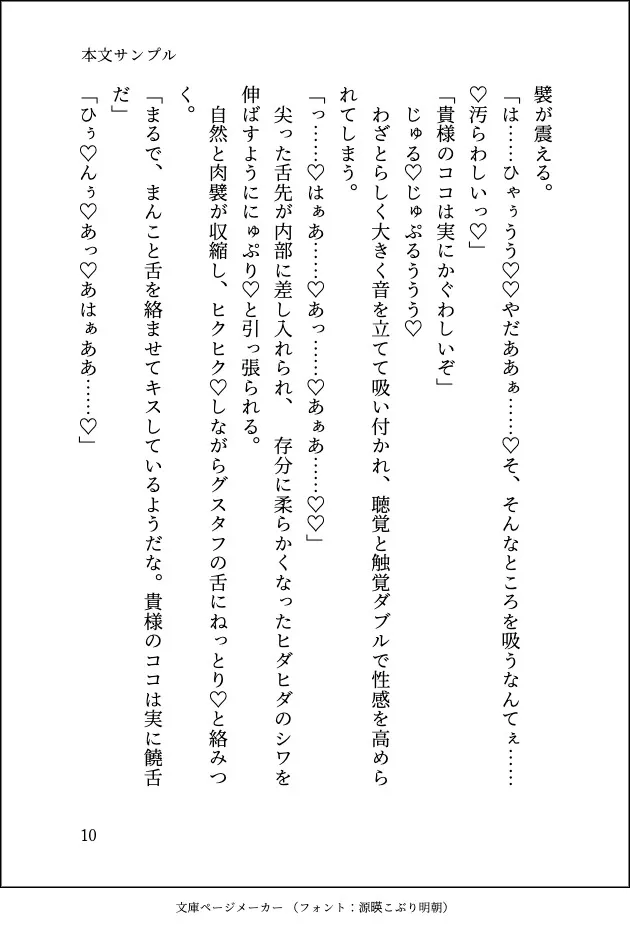 本文サンプル
襞が震える。
「は……ひゃぅうう♡♡やだああぁ……♡そ、そんなところを吸うなんてぇ……
♡汚らわしいっ♡」
「貴様のココは実にかぐわしいぞ」
じゅる♡じゅぷるううう♡
わざとらしく大きく音を立てて吸い付かれ、聴覚と触覚ダブルで性感を高めら
れてしまう。
「っ……♡はぁあ……♡あっ……♡あぁあ……♡♡」
尖った舌先が内部に差し入れられ、 存分に柔らかくなったヒダヒダのシワを
伸ばすようににゅぷり♡と引っ張られる。
自然と肉襞が収縮し、ヒクヒク♡しながらグスタフの舌にねっとり♡と絡みつ
く。
「まるで、まんこと舌を絡ませてキスしているようだな。貴様のココは実に饒舌
だ」
「ひぅ♡んぅ♡あっ♡あはぁああ……♡」
10
文庫ページメーカー（フォント：源暎こぶり明朝）